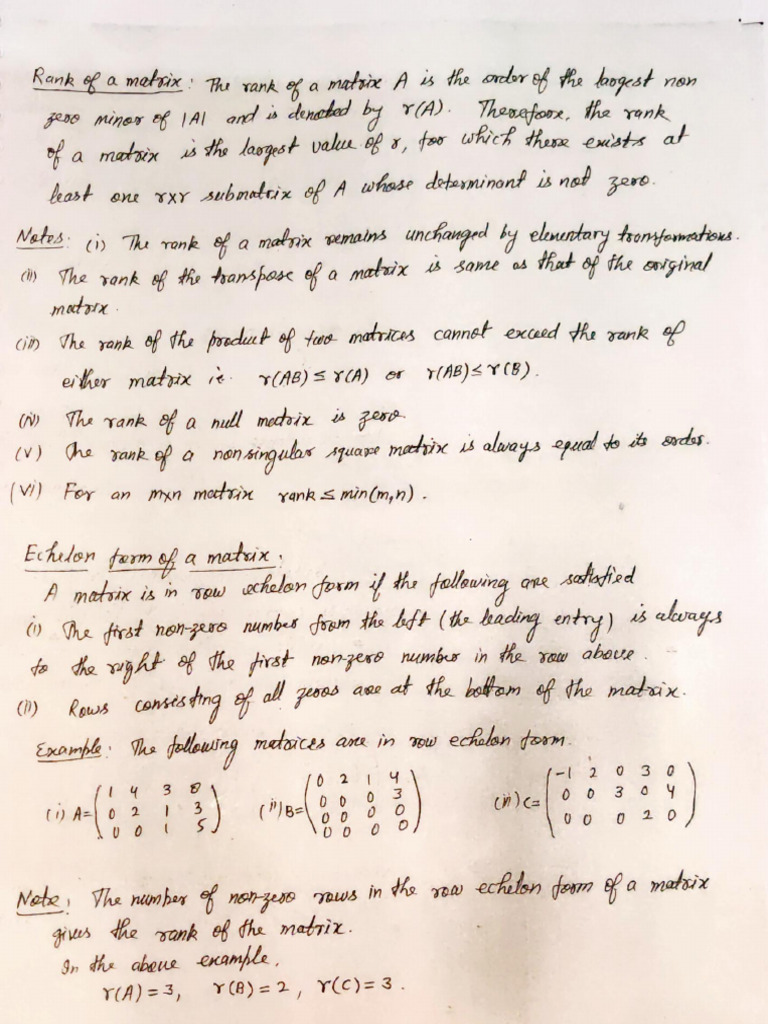 Rank of a matrix: The rank of a matrix A is the order of the largest non
zero minor of |A| and is denoted by r(A). Therefore, the rank
of a matrix is the largest value of r, for which there exists at
least one rxr submatrix of A whose determinant is not zero.
Notes: (i) The rank of a matrix remains unchanged by elementary transformations.
(ii) The rank of the transpose of a matrix is same as that of the original
matrix.
(iii) The rank of the product of two matrices cannot exceed the rank of
either matrix ie. r(AB) ≤ r(A) or r(AB) ≤ r(B).
(iv) The rank of a null matrix is zero.
(v) The rank of a nonsingular square matrix is always equal to its order.
(vi) For an mxn matrix rank ≤ min(m,n).
Echelon form of a matrix:
A matrix is in row echelon form if the following are satisfied
(i) The first non-zero number from the left (the leading entry) is always
to the right of the first non-zero number in the row above.
(ii) Rows consisting of all zeros are at the bottom of the matrix.
Example: The following matrices are in row echelon form.
(i) A= (1 4 3 0 / 0 2 1 3 / 0 0 1 5) (ii) B= (0 2 1 4 / 0 0 0 3 / 0 0 0 0 / 0 0 0 0) (iii) C= (-1 2 0 3 0 / 0 0 3 0 4 / 0 0 0 2 0)
Note: The number of non-zero rows in the row echelon form of a matrix
gives the rank of the matrix.
In the above example,
r(A) = 3, r(B) = 2, r(C) = 3.